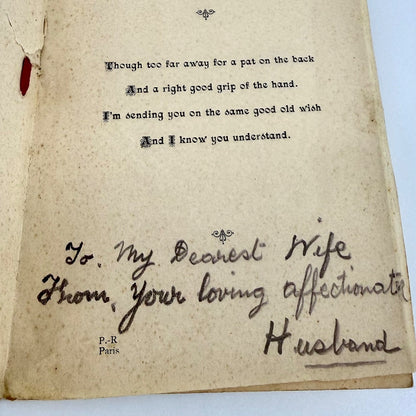 Though too far away for a pat on the back
And a right good grip of the hand.
I'm sending you on the same good old wish
And I know you understand.
To. My Dearest Wife
From. Your loving affectionate
Husband
P.-R
Paris